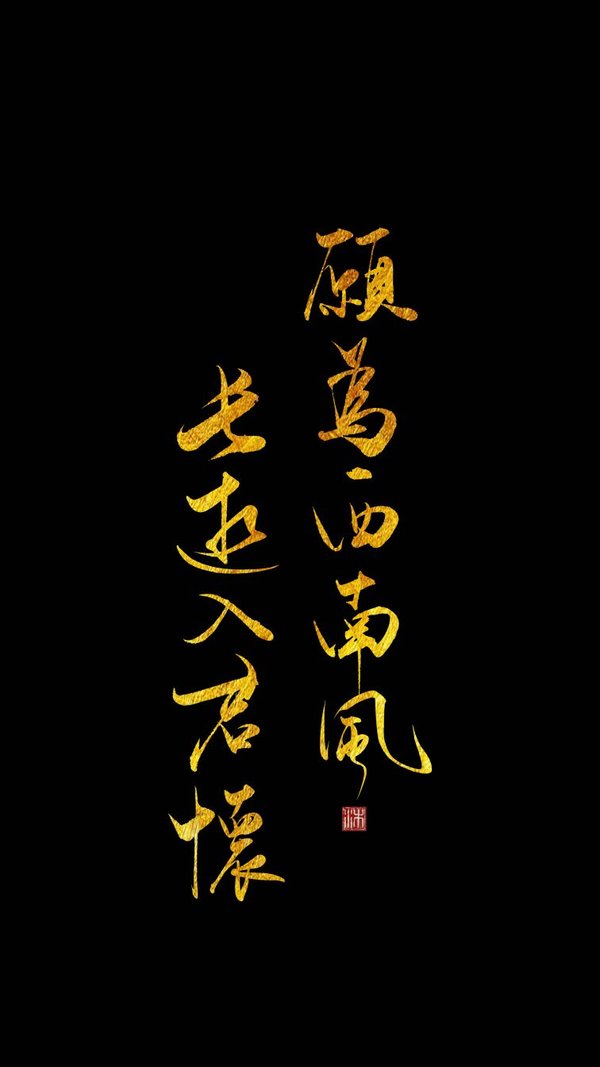 願為西南風
長逝入君懷